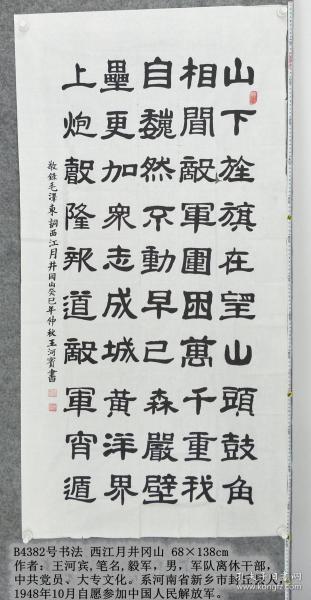 山下旌旗在望山頭鼓角
相聞敵軍圍困萬千重我
自巍然不動早已森嚴壁
壘更加衆志成城黃洋界
上炮聲隆報道敵軍宵遁
敬錄毛澤東詞西江月井岡山癸巳年仲秋王河賓書
B4382号书法 西江月井冈山 68×138cm
作者：王河宾,笔名,毅军，男，军队离休干部，
中共党员、大专文化。系河南省新乡市封丘县人，
1948年10月自愿参加中国人民解放军。